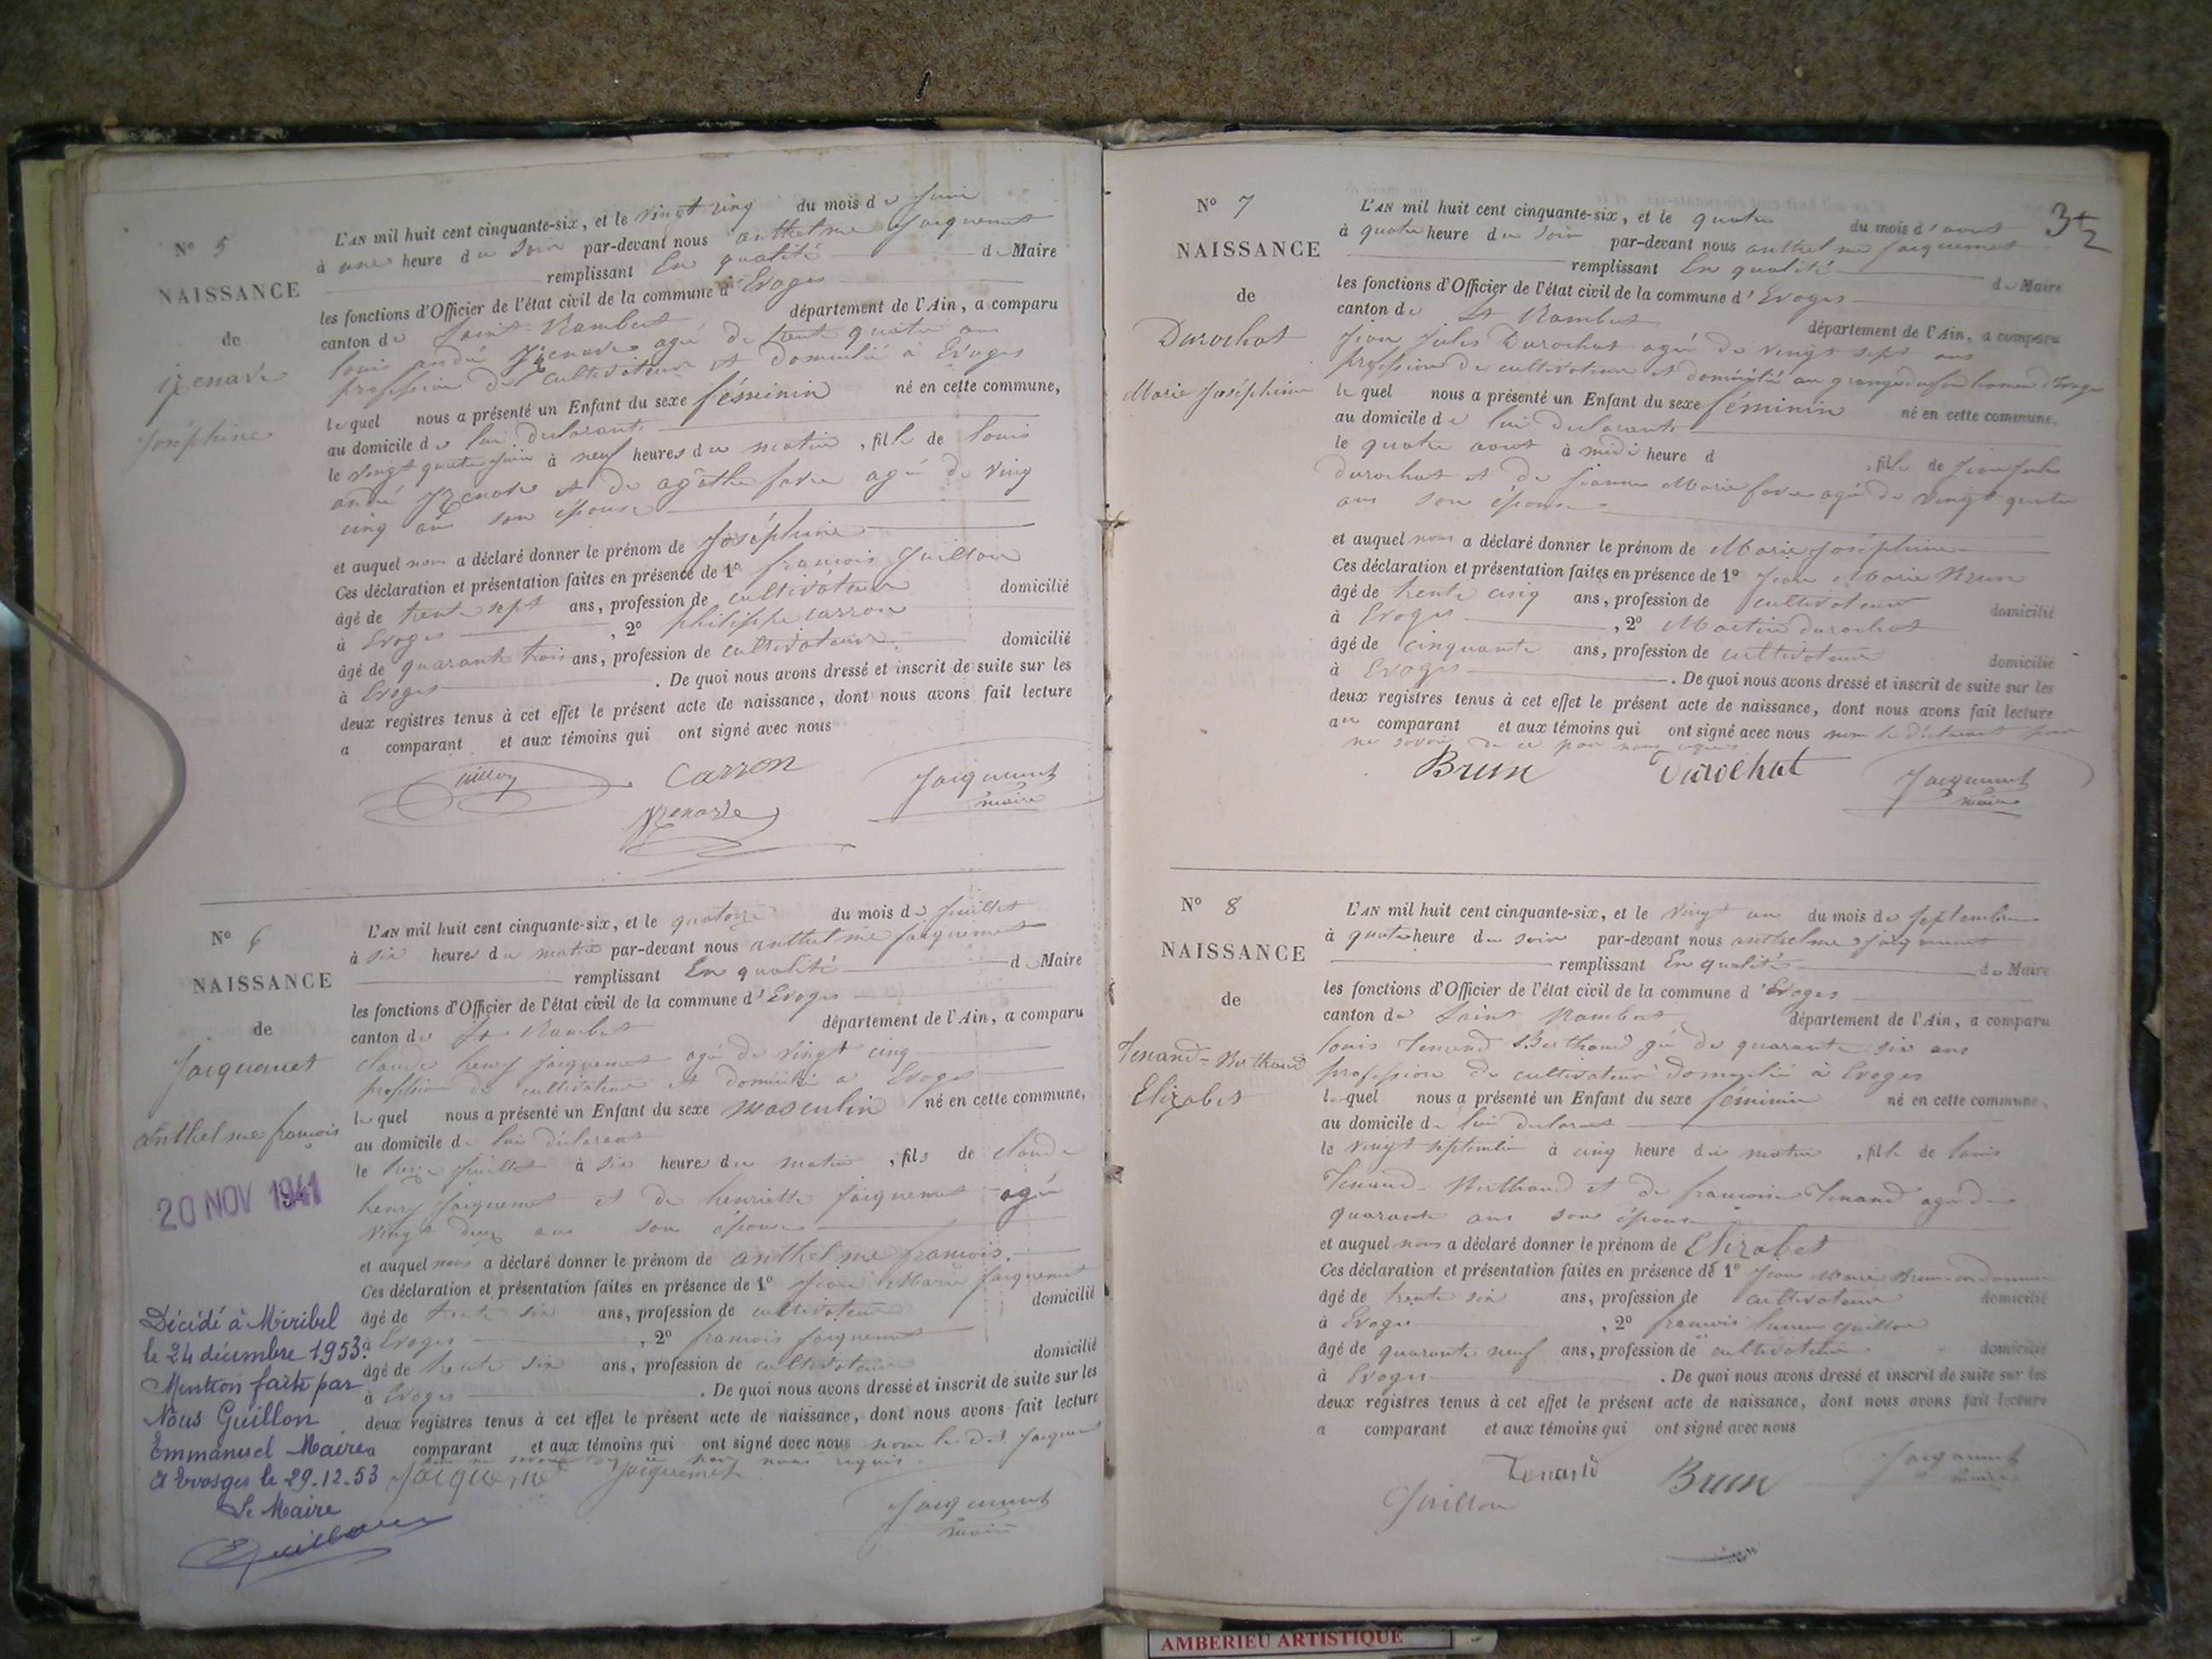 N° 5
NAISSANCE
de
izenave
Joséphine
L'AN mil huit cent cinquante-six, et le vingt cinq du mois de Juin
à une heure du soir par-devant nous anthelme Jacquemet
remplissant En qualité de Maire
les fonctions d'Officier de l'état civil de la commune d'Evoges
canton de Saint-Rambert département de l'Ain, a comparu
louis andré agé de trente quatre ans
profession de cultivateur et domicilié à Evoges
lequel nous a présenté un Enfant du sexe féminin né en cette commune,
au domicile de lui déclarant
le vingt quatre juin à neuf heures du matin, fille de louis
andré et de agathe favre agé de ving
cinq ans son épouse
et auquel nous a déclaré donner le prénom de Joséphine
Ces déclaration et présentation faites en présence de 1° francois Guillon
âgé de trente sept ans, profession de cultivateur domicilié
à Evoges, 2° philippe carron
âgé de quarante trois ans, profession de cultivateur domicilié
à Evoges. De quoi nous avons dressé et inscrit de suite sur les
deux registres tenus à cet effet le présent acte de naissance, dont nous avons fait lecture
a comparant et aux témoins qui ont signé avec nous
Guillon Carron Jacquemet
maire
N° 6
NAISSANCE
de
Jacquemet
Anthelme françois
20 NOV 1941
Décidé à Miribel
le 24 décembre 1953.
Mention faite par
Nous Guillon
Emmanuel Maire
d'Evosges le 29.12.53
Le Maire
EGuillon
L'AN mil huit cent cinquante-six, et le quatorze du mois de Juillet
à six heures du matin par-devant nous anthelme Jacquemet
remplissant En qualité de Maire
les fonctions d'Officier de l'état civil de la commune d'Evoges
canton de St Rambert département de l'Ain, a comparu
claude henry jacquemet agé de vingt cinq
profession de cultivateur et domicilié a Evoges
lequel nous a présenté un Enfant du sexe masculin né en cette commune,
au domicile de lui déclarant
le treize juillet à six heures du matin, fils de claude
henry Jacquemet et de henriette jacquemet agé
vingt deux ans son épouse
et auquel nous a déclaré donner le prénom de anthelme francois.
Ces déclaration et présentation faites en présence de 1° Jean Marie Jacquemet
âgé de trente six ans, profession de cultivateur domicilié
à Evoges, 2° francois Jacquemet
âgé de trente six ans, profession de cultivateur domicilié
à Evoges. De quoi nous avons dressé et inscrit de suite sur les
deux registres tenus à cet effet le présent acte de naissance, dont nous avons fait lecture
a comparant et aux témoins qui ont signé avec nous
Jacquemet Jacquemet
Jacquemet
maire
32
N° 7
NAISSANCE
de
Durochat
Marie Joséphine
L'AN mil huit cent cinquante-six, et le quatre du mois d'aout
à quatre heure du soir par-devant nous anthelme Jacquemet
remplissant En qualité de Maire
les fonctions d'Officier de l'état civil de la commune d'Evoges
canton de St Rambert département de l'Ain, a comparu
Jean Jules Durochat agé de vingt sept ans
profession de cultivateur et domicilié au
lequel nous a présenté un Enfant du sexe féminin né en cette commune,
au domicile de lui déclarant
le quatre aout à midi heure d, fille de Jean Jules
durochat et de jeanne Marie favre agé de vingt quatre
ans son épouse
et auquel nous a déclaré donner le prénom de Marie Joséphine
Ces déclaration et présentation faites en présence de 1° Jean Marie Brun
âgé de trente cinq ans, profession de cultivateur domicilié
à Evoges, 2° Martin durochat
âgé de cinquante ans, profession de cultivateur domicilié
à Evoges. De quoi nous avons dressé et inscrit de suite sur les
deux registres tenus à cet effet le présent acte de naissance, dont nous avons fait lecture
au comparant et aux témoins qui ont signé avec nous non le déclarant pour
ne savoir de ce par nous requis
Brun Durochat Jacquemet
maire
N° 8
NAISSANCE
de
Tenand-Berthaud
Elizabet
L'AN mil huit cent cinquante-six, et le vingt un du mois de septembre
à quatre heure du soir par-devant nous anthelme Jacquemet
remplissant En qualité de Maire
les fonctions d'Officier de l'état civil de la commune d'Evoges
canton de Saint Rambert département de l'Ain, a comparu
louis Tenand Berthaud gé de quarante six ans
profession de cultivateur domicilié à Evoges
lequel nous a présenté un Enfant du sexe féminin né en cette commune,
au domicile de lui déclarant
le vingt septembre à cinq heure du matin, fille de louis
Tenand-Berthaud et de francoise Tenand agé de
quarante ans son épouse
et auquel nous a déclaré donner le prénom de Elizabet
Ces déclaration et présentation faites en présence de 1° Jean Marie Brun
âgé de trente six ans, profession de cultivateur domicilié
à Evoges, 2° francois Guillon
âgé de quarante neuf ans, profession de cultivateur domicilié
à Evoges. De quoi nous avons dressé et inscrit de suite sur les
deux registres tenus à cet effet le présent acte de naissance, dont nous avons fait lecture
a comparant et aux témoins qui ont signé avec nous
Tenand Brun Jacquemet
maire
Guillon
AMBERIEU ARTISTIQUE